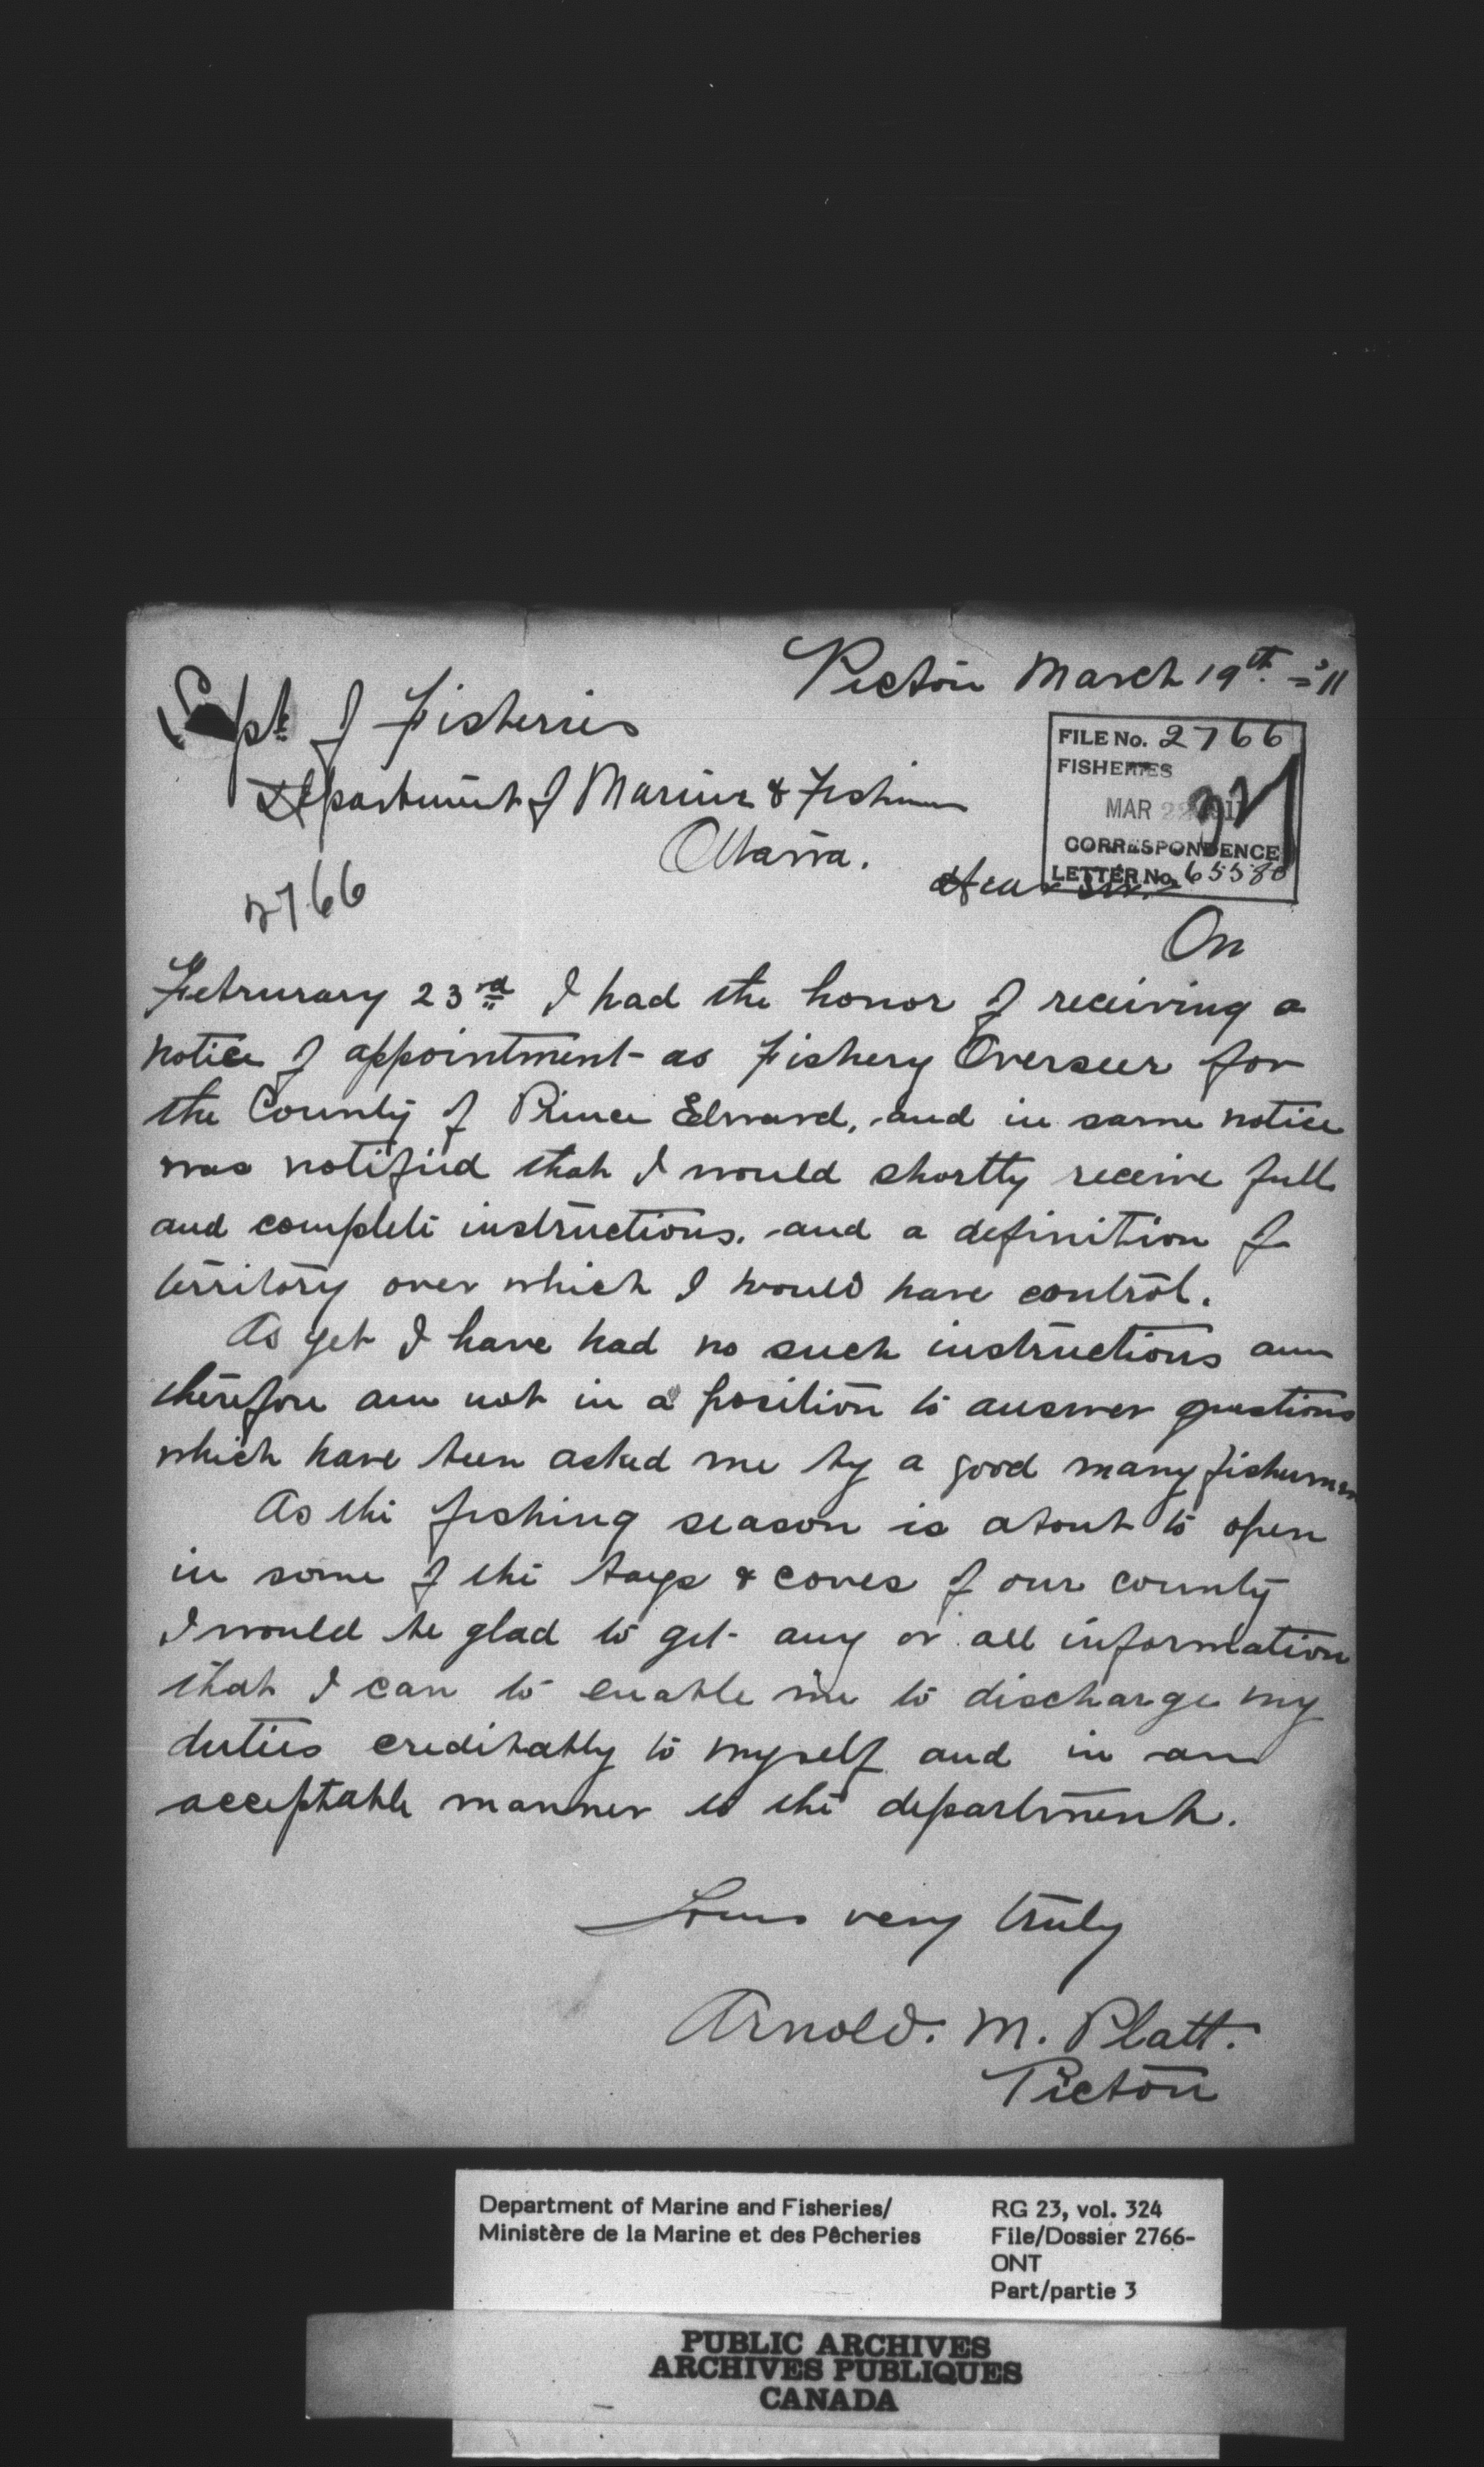 Picton March 19th - '11
Supt of Fisheries
FILE No. 2766
FISHERIES
Department of Marine & Fisheries
MAR 22 1911
CORRESPONDENCE
Ottawa.
LETTER No. 65580
Dear Sir.
2766
On
Februrary 23rd I had the honor of receiving a
notice of appointment as Fishery Overseer for
the County of Prince Edward, and in same notice
was notified that I would shortly receive full
and complete instructions. and a definition of
territory over which I would have control.
As yet I have had no such instructions and
therefore am not in a position to answer questions
which have been asked me by a good many fishermen
As the fishing season is about to open
in some of the bays & coves of our county
I would be glad to get any or all information
that I can to enable me to discharge my
duties creditably to myself and in an
acceptable manner to the department.
Yours very truly
Arnold. M. Platt.
Picton
Department of Marine and Fisheries/
Ministère de la Marine et des Pêcheries
RG 23, vol. 324
File/Dossier 2766-
ONT
Part/partie 3
PUBLIC ARCHIVES
ARCHIVES PUBLIQUES
CANADA